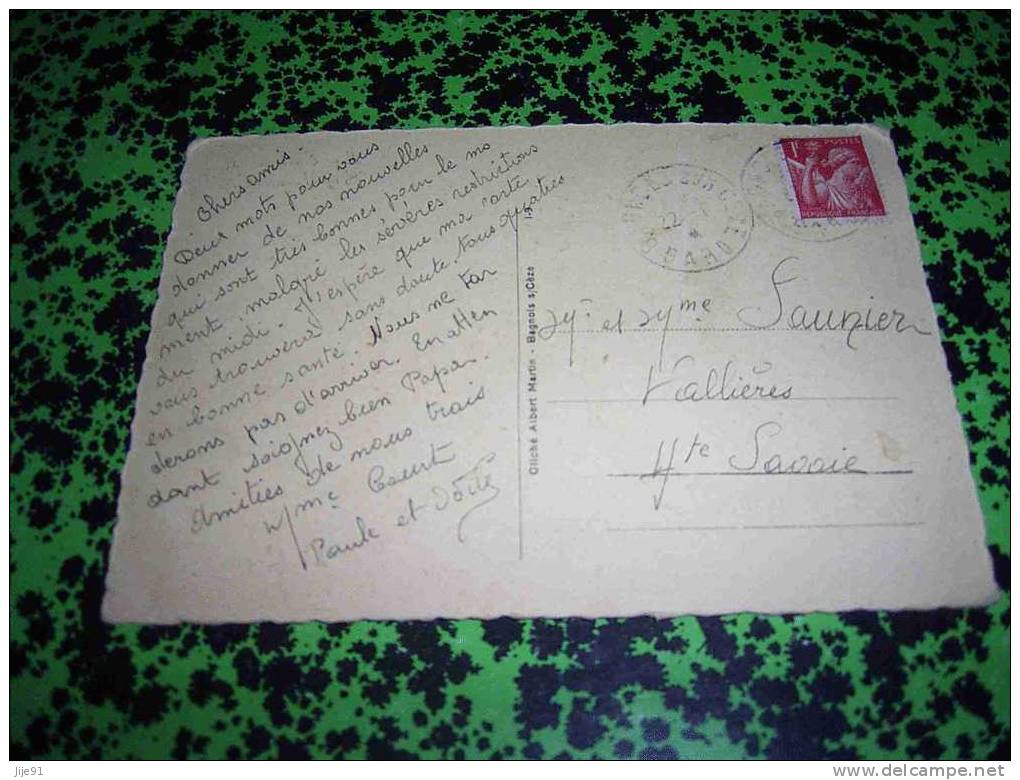 Chers amis.
Deux mots pour vous
donner de nos nouvelles
qui sont très bonnes pour le mo
ment, malgré les sévères restrictions
du midi. J'espère que ma carte
vous trouvera sans doute tous quatres
en bonne santé. Nous ne tar
derons pas d'arriver. En atten
dant soignez bien Papa.
Amitiés de nous trois
Mme
Paule et
Cliché Albert Martin - Bagnols s/Cèze
13
BAGNOLS SUR CEZE
22
GARD
1F
POSTES
REPUBLIQUE FRANÇAISE
Mr et Mme Saunier
Vallières
Hte Savoie
jije91
www.delcampe.net